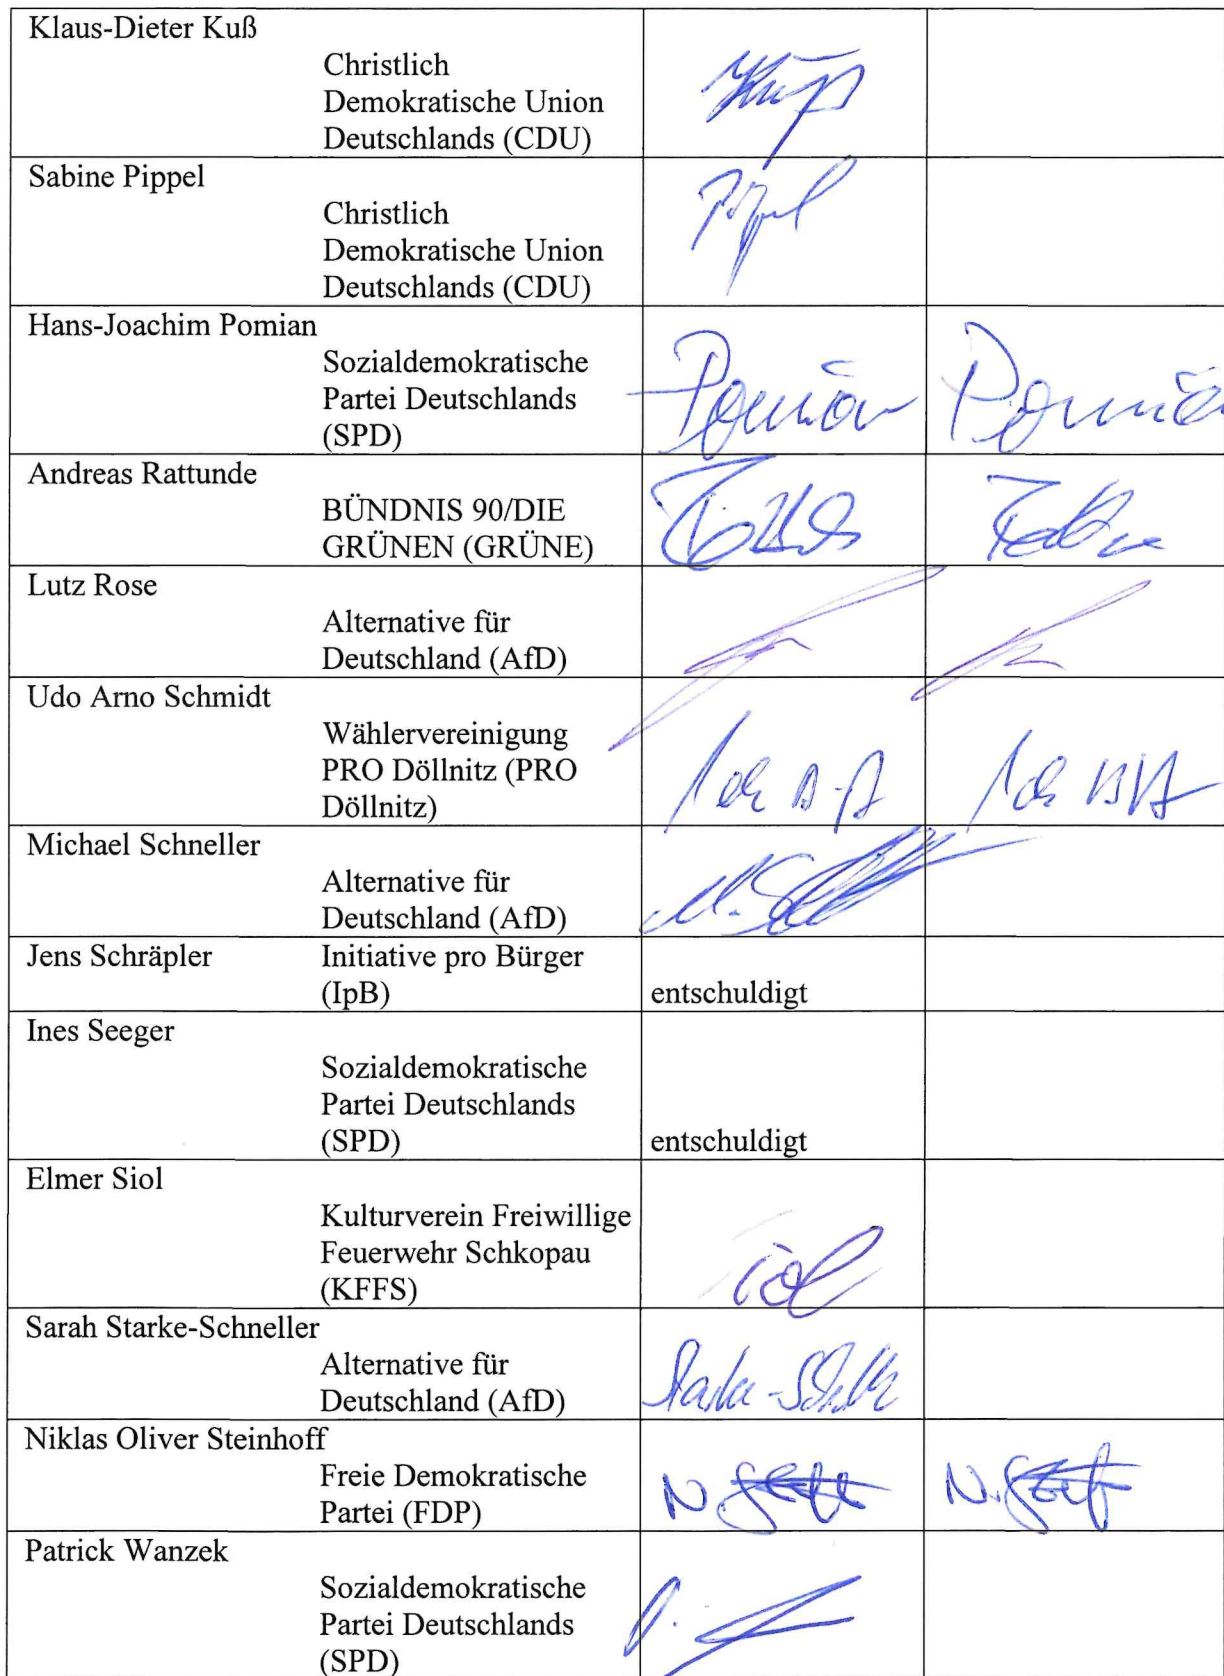 Klaus-Dieter Kuß
Christlich
Demokratische Union
Deutschlands (CDU)
Sabine Pippel
Christlich
Demokratische Union
Deutschlands (CDU)
Hans-Joachim Pomian
Sozialdemokratische
Partei Deutschlands
(SPD)
Pomian Pomian
Andreas Rattunde
BÜNDNIS 90/DIE
GRÜNEN (GRÜNE)
Lutz Rose
Alternative für
Deutschland (AfD)
Udo Arno Schmidt
Wählervereinigung
PRO Döllnitz (PRO
Döllnitz)
Michael Schneller
Alternative für
Deutschland (AfD)
Jens Schräpler Initiative pro Bürger
(IpB) entschuldigt
Ines Seeger
Sozialdemokratische
Partei Deutschlands
(SPD) entschuldigt
Elmer Siol
Kulturverein Freiwillige
Feuerwehr Schkopau
(KFFS)
Sarah Starke-Schneller
Alternative für
Deutschland (AfD)
Niklas Oliver Steinhoff
Freie Demokratische
Partei (FDP)
Patrick Wanzek
Sozialdemokratische
Partei Deutschlands
(SPD)